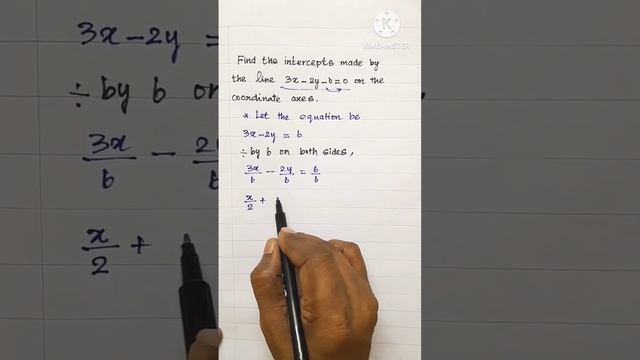 3x-2y =
÷ by 6 on
3x/6 - 2y
x/2 +
KINEMASTER
Find the intercepts made by
the line 3x-2y-6=0 on the
coordinate axes.
* Let the equation be
3x-2y = 6
÷ by 6 on both sides,
3x/6 - 2y/6 = 6/6
x/2 +